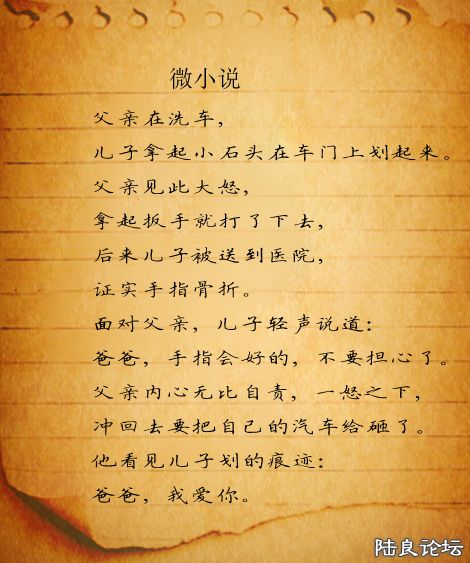 微小说
父亲在洗车，
儿子拿起小石头在车门上划起来。
父亲见此大怒，
拿起扳手就打了下去，
后来儿子被送到医院，
证实手指骨折。
面对父亲，儿子轻声说道：
爸爸，手指会好的，不要担心了。
父亲内心无比自责，一怒之下，
冲回去要把自己的汽车给砸了。
他看见儿子划的痕迹：
爸爸，我爱你。
陆良论坛